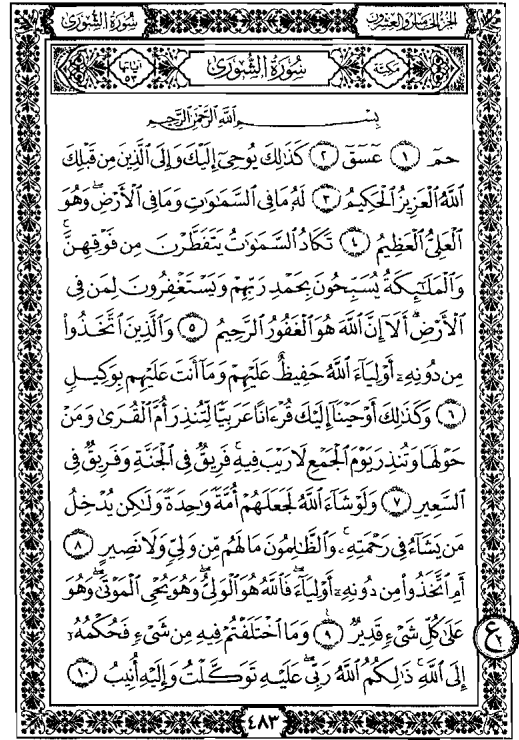 سُورَةُ الشُّورَىٰ
الجزء الخامس والعشرون
آياتها ٥٣
سُورَةُ الشُّورَىٰ
مكيّة
بِسْمِ ٱللَّهِ ٱلرَّحْمَٰنِ ٱلرَّحِيمِ
حمٓ ١ عٓسٓقٓ ٢ كَذَٰلِكَ يُوحِىٓ إِلَيْكَ وَإِلَى ٱلَّذِينَ مِن قَبْلِكَ
ٱللَّهُ ٱلْعَزِيزُ ٱلْحَكِيمُ ٣ لَهُۥ مَا فِى ٱلسَّمَٰوَٰتِ وَمَا فِى ٱلْأَرْضِ ۖ وَهُوَ
ٱلْعَلِىُّ ٱلْعَظِيمُ ٤ تَكَادُ ٱلسَّمَٰوَٰتُ يَتَفَطَّرْنَ مِن فَوْقِهِنَّ ۚ
وَٱلْمَلَٰٓئِكَةُ يُسَبِّحُونَ بِحَمْدِ رَبِّهِمْ وَيَسْتَغْفِرُونَ لِمَن فِى
ٱلْأَرْضِ ۗ أَلَآ إِنَّ ٱللَّهَ هُوَ ٱلْغَفُورُ ٱلرَّحِيمُ ٥ وَٱلَّذِينَ ٱتَّخَذُوا۟
مِن دُونِهِۦٓ أَوْلِيَآءَ ٱللَّهُ حَفِيظٌ عَلَيْهِمْ وَمَآ أَنتَ عَلَيْهِم بِوَكِيلٍ
٦ وَكَذَٰلِكَ أَوْحَيْنَآ إِلَيْكَ قُرْءَانًا عَرَبِيًّا لِّتُنذِرَ أُمَّ ٱلْقُرَىٰ وَمَنْ
حَوْلَهَا وَتُنذِرَ يَوْمَ ٱلْجَمْعِ لَا رَيْبَ فِيهِ ۚ فَرِيقٌ فِى ٱلْجَنَّةِ وَفَرِيقٌ فِى
ٱلسَّعِيرِ ٧ وَلَوْ شَآءَ ٱللَّهُ لَجَعَلَهُمْ أُمَّةً وَٰحِدَةً وَلَٰكِن يُدْخِلُ
مَن يَشَآءُ فِى رَحْمَتِهِۦ ۚ وَٱلظَّٰلِمُونَ مَا لَهُم مِّن وَلِىٍّ وَلَا نَصِيرٍ ٨
أَمِ ٱتَّخَذُوا۟ مِن دُونِهِۦٓ أَوْلِيَآءَ ۖ فَٱللَّهُ هُوَ ٱلْوَلِىُّ وَهُوَ يُحْىِ ٱلْمَوْتَىٰ وَهُوَ
عَلَىٰ كُلِّ شَىْءٍ قَدِيرٌ ٩ وَمَا ٱخْتَلَفْتُمْ فِيهِ مِن شَىْءٍ فَحُكْمُهُۥٓ
إِلَى ٱللَّهِ ۚ ذَٰلِكُمُ ٱللَّهُ رَبِّى عَلَيْهِ تَوَكَّلْتُ وَإِلَيْهِ أُنِيبُ ١٠
ع
٤٨٣